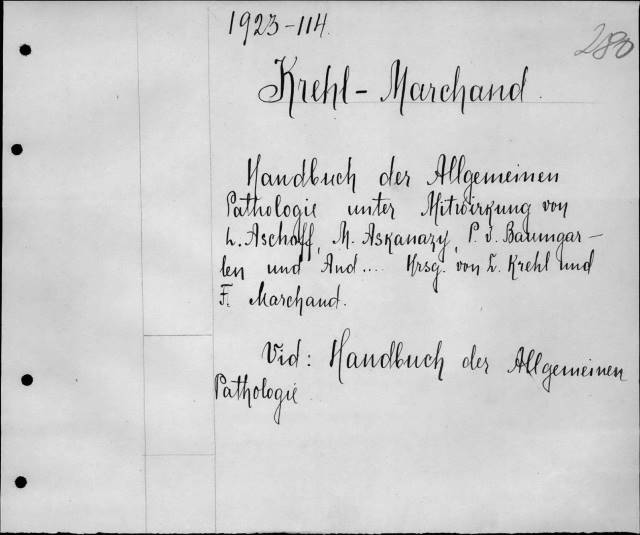 1923-114.
280
Krehl - Marchand.
Handbuch der Allgemeinen
Pathologie unter Mitwirkung von
L. Aschoff, M. Askanazy, P. v. Baumgar-
ten und And.... Hrsg. von L. Krehl und
F. Marchand.
Vid: Handbuch der Allgemeinen
Pathologie